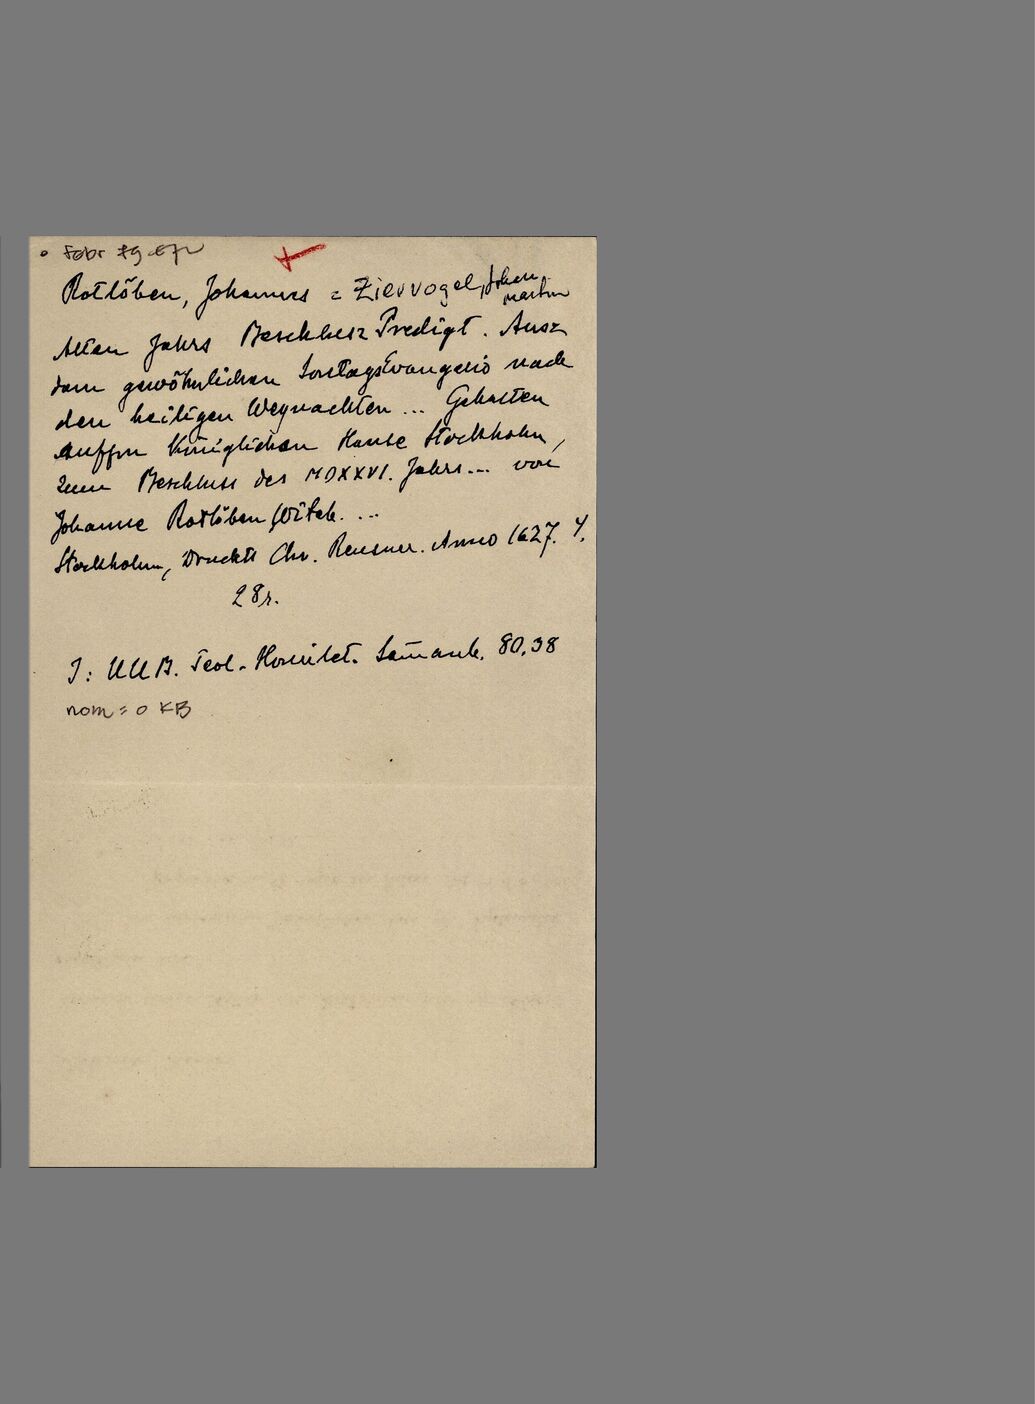 Rotlöben, Johannes = Ziervogel, Johan
Martin
Alten Jahrs Beschlusz Predigt. Ausz
dem gewöhnlichen SontagsEvangelio nach
den heiligen Weynachten ... Gehalten
auffm Königlichen Hause Stockholm,
zum Beschluss des MDXXVI. Jahrs... von
Johanne Rotlöben Witeb. ...
Stockholm, Druckts Chr. Reusner. Anno 1627. 4.
28 s.
I: UUB. Teol. Homilet. Samank. 80.38
nom = o KB